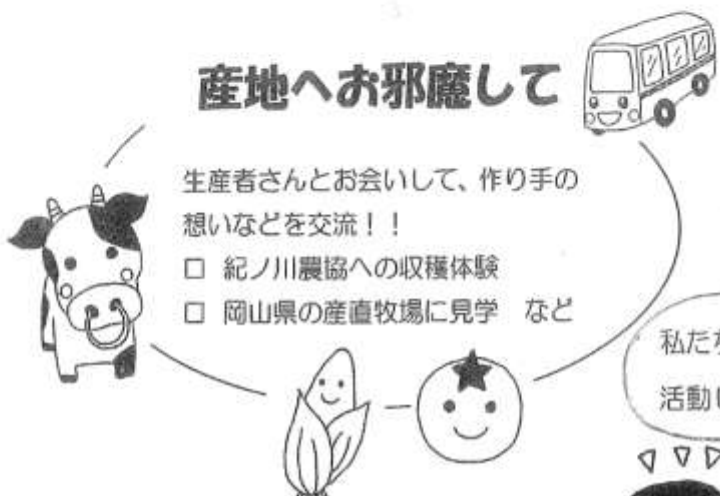 産地へお邪魔して
生産者さんとお会いして、作り手の
想いなどを交流！！
□ 紀ノ川農協への収穫体験
□ 岡山県の産直牧場に見学　など
私た
活動